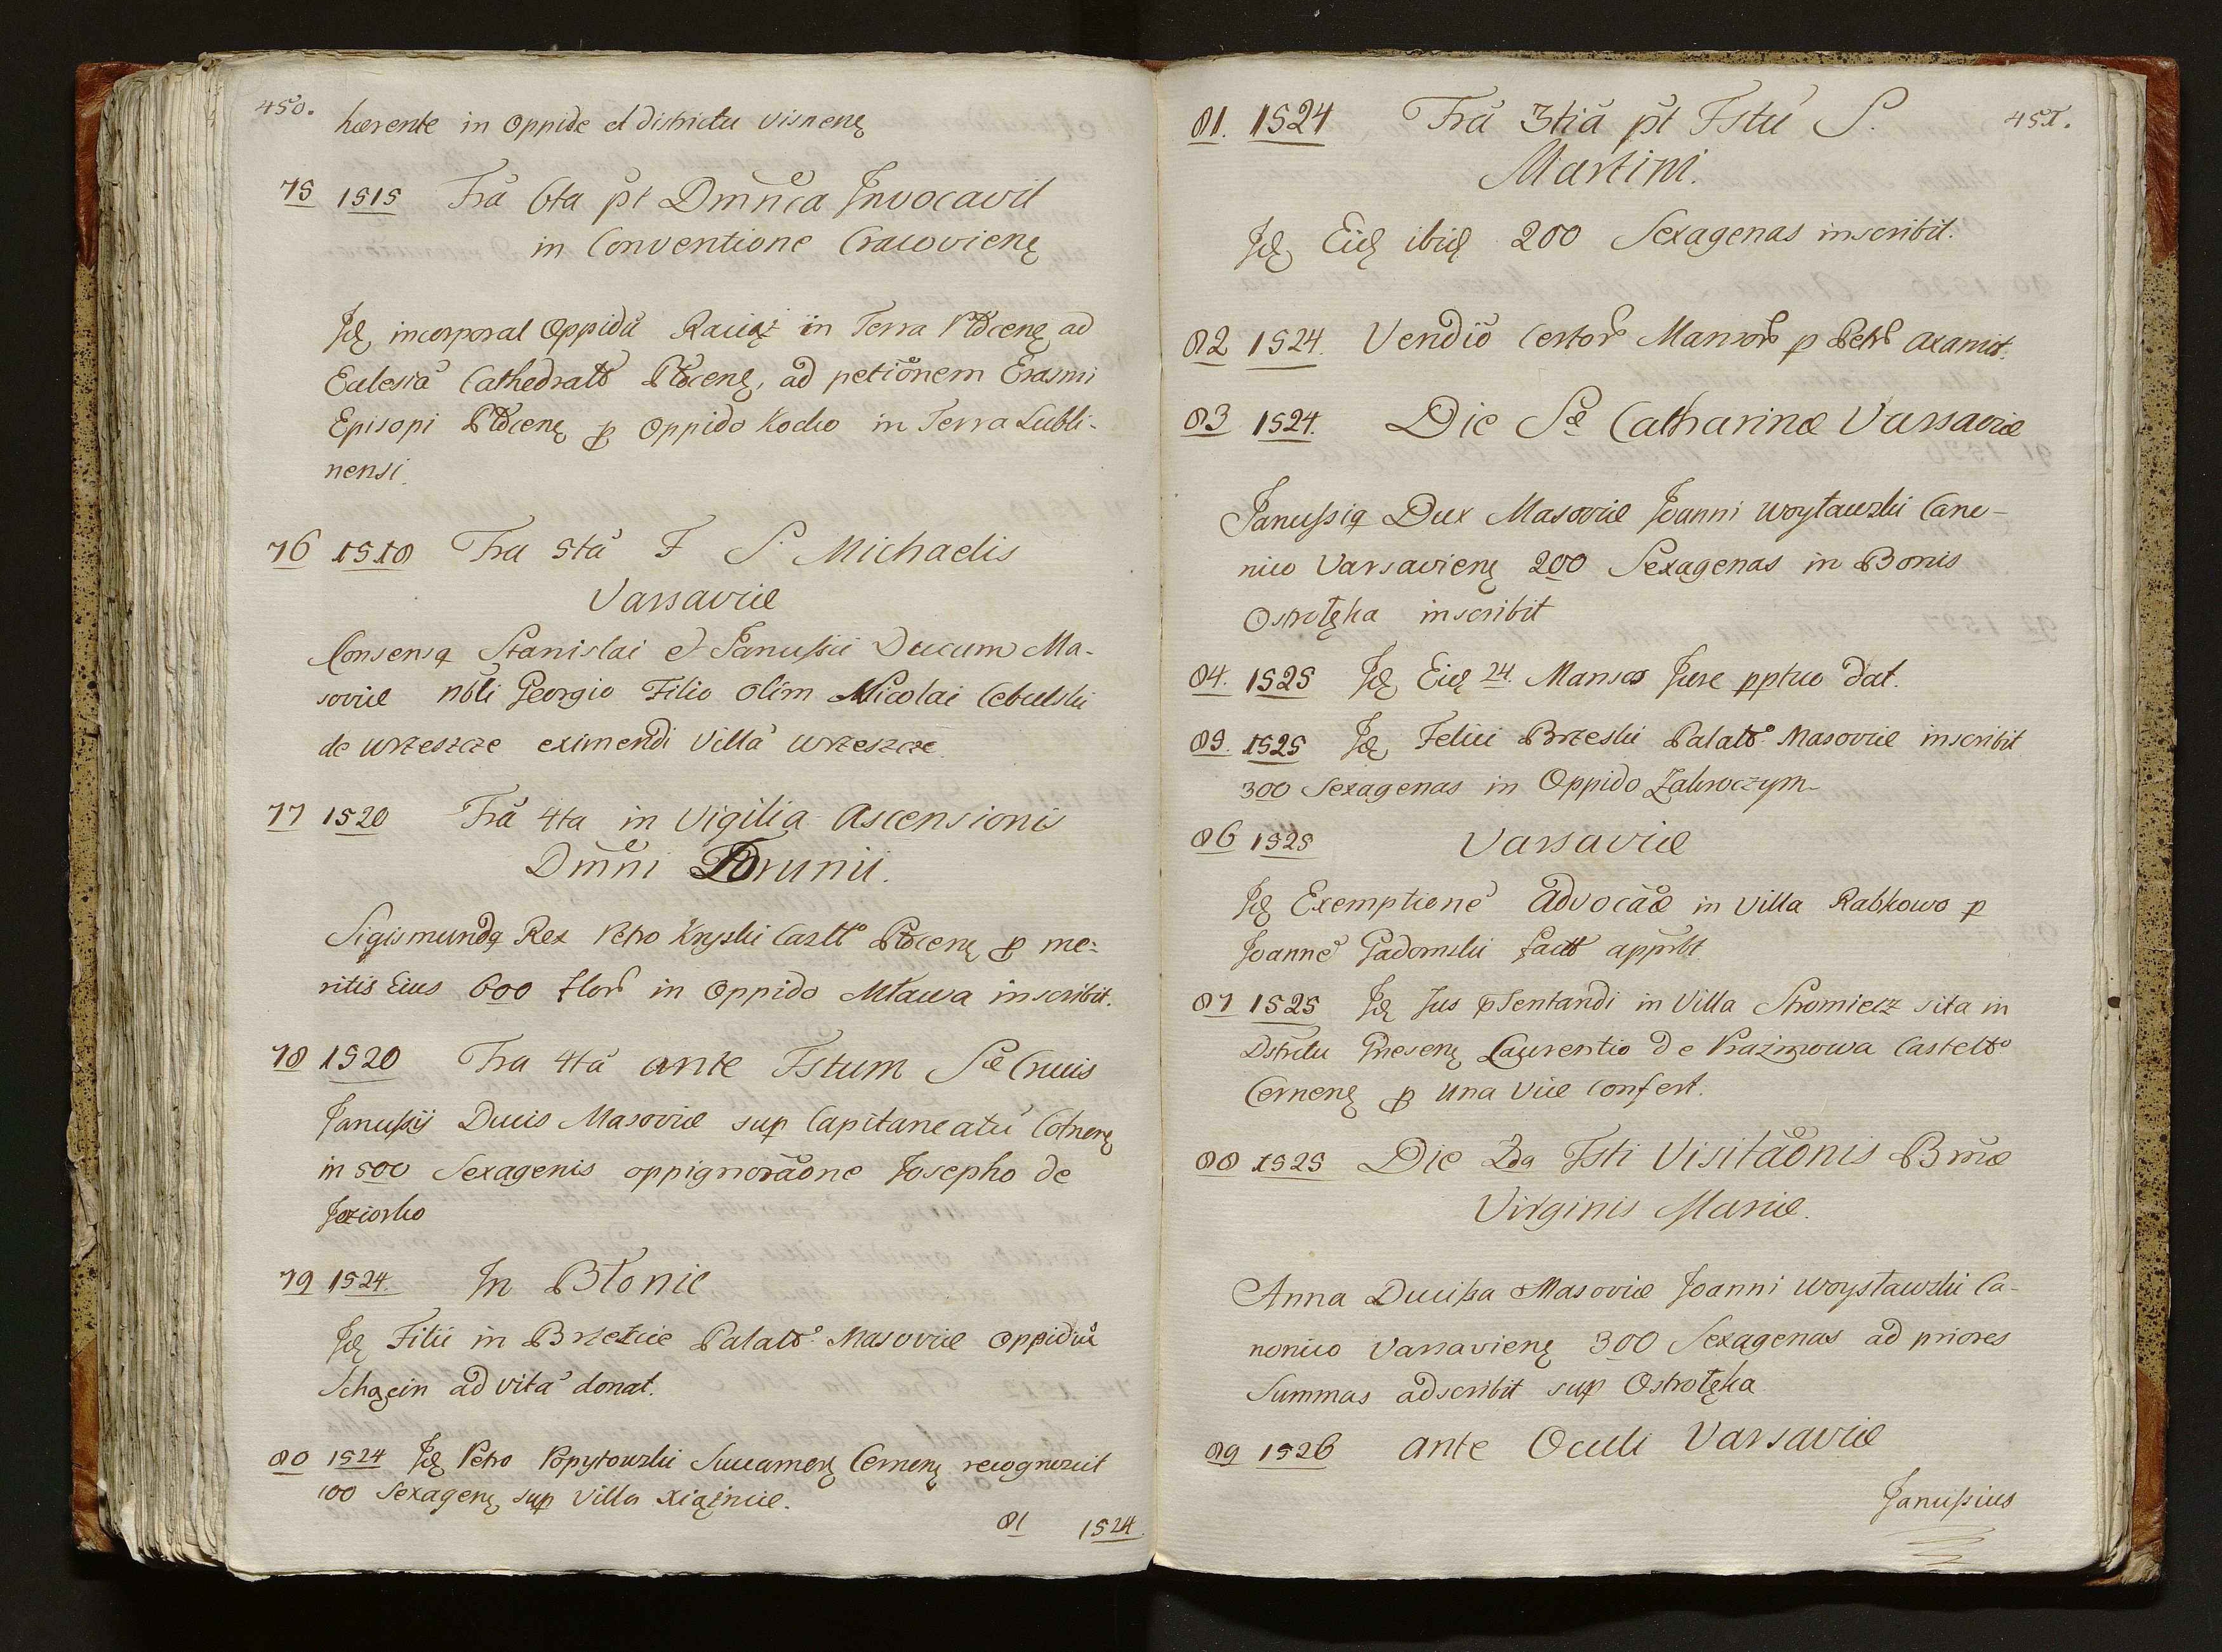 450.
hærente in Oppido et districtu Visnenę
75 1515 Fra 6ta pt Dmnca Invocavit
in Conventione Cracovienę
Idę incorporat Oppidū Raciąż in Terra Plocenę ad
Eclesiā Cathedralē Plocenę, ad petiōnem Erasmi
Episopi Plocenę p Oppido Kocko in Terra Lubli-
nensi.
76 1518 Fra 5ta F S. Michaelis
Varsaviæ
Consensq Stanislai et Janussii Ducum Ma-
soviæ nbli Georgio Filio olim Nicolai Cebulski
de Wrzeszcze eximendi Villā Wrzeszcze
77 1520 Fra 4ta in Vigilia Ascensionis
Dmni Torunii.
Sigismundq Rex Petro Kryski Castt Plocenę p me-
ritis Eius 600 flor in Oppido Mława inscribit.
78 1520 Fra 4ta ante Fstum Sæ Crucis
Janussij Ducis Masoviæ sup Capitaneatū Colnenę
in 500 Sexagenis oppignorāone Josepho de
Jeziorko
79 1524. In Błonie
Idę Filii in Brzezie Palato Masoviæ Oppidum
Schocin ad vitā donat.
80 1524 Idę Petro Popytowski Succamerę Cernenę recognovit
100 Sexagenę sup Villa Xiąznice.
81 1524.
451.
81. 1524 Fra 3tia pt Fstū S.
Martini.
Idę Eidę ibidę 200 Sexagenas inscribit.
82 1524. Vendiō Certor Mansor p Petr Axamit.
83 1524. Die Sæ Catharinæ Varsaviæ
Janussiq Dux Masoviæ Joanni Woysławski Cano-
nico Varsavienę 200 Sexagenas in Bonis
Ostrołęka inscribit
84. 1525 Idę Eidę 24 Mansos Jure pptuo dat.
85. 1525 Idę Felici Brzeski Palato Masoviæ inscribit
300 Sexagenas in Oppido Zakroczym
86 1525 Varsaviæ
Idę Exemptionē Advocāæ in Villa Rabkowo p
Joannē Gadomski fact apprbt
87 1525 Idę Jus psentandi in Villa Stromiecz sita in
Dstrctu Gnesenę Laurentio de Prażmowa Castelto
Cernenę p una vice confert.
88 1525 Die 2da Fsti Visitāonis Bmæ
Virginis Mariæ.
Anna Ducissa Masoviæ Joanni Woysławski Ca-
nonico Varsavienę 300 Sexagenas ad priores
Summas adscribit sup Ostrołęka
89 1526 ante Oculi Varsaviæ
Janussius